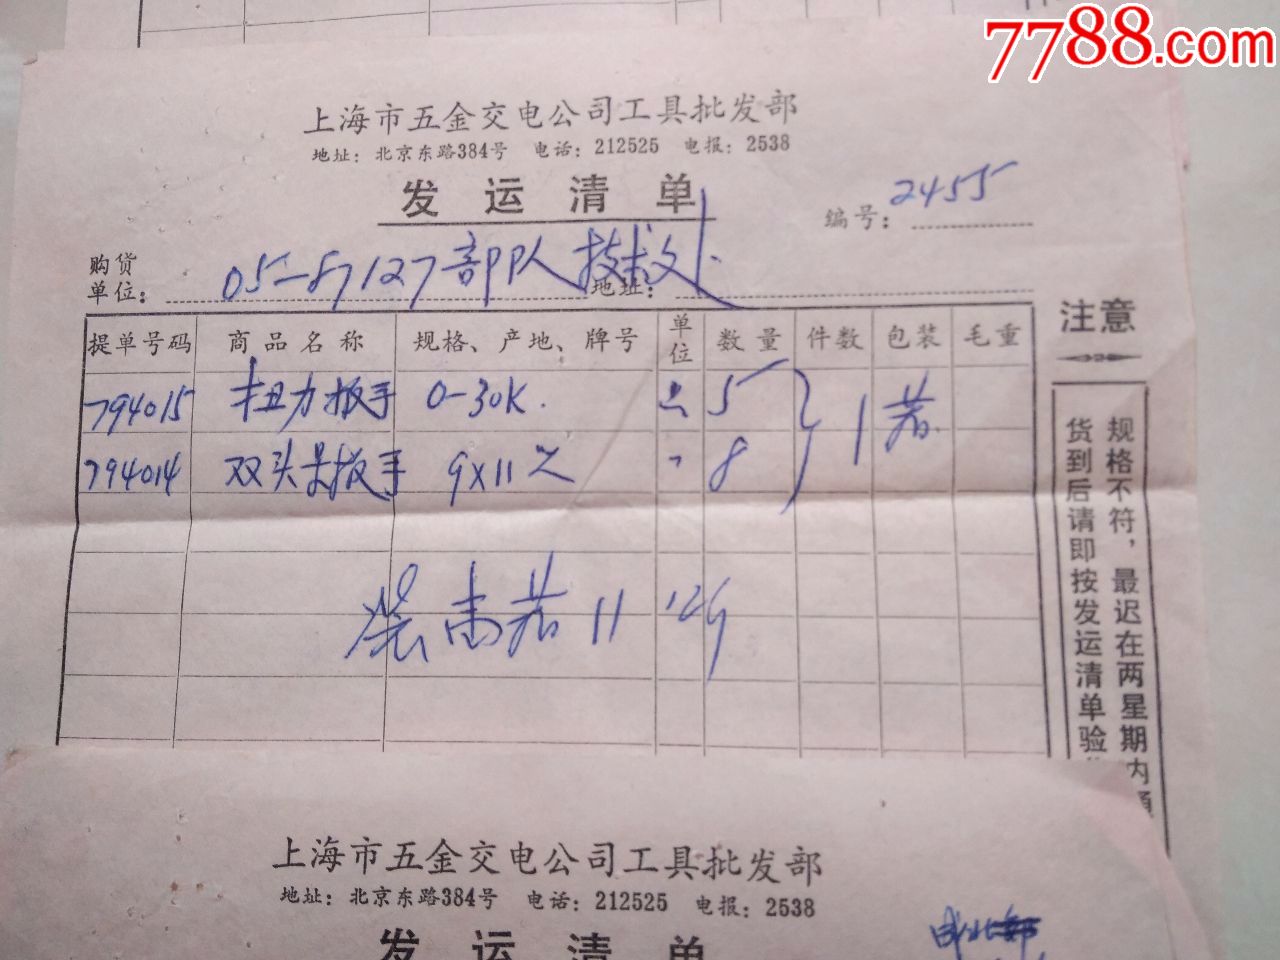 7788.com
上海市五金交电公司工具批发部
地址：北京东路384号 电话：212525 电报：2538
发运清单
编号：2455
购货单位：05-87127部队技术处 地址：
提单号码 商品名称 规格、产地、牌号 单位 数量 件数 包装 毛重
794015 扭力扳手 0-30K. 只 5 1
794014 双头呆扳手 9X11 〃 8
11
注意
规格不符，最迟在两星期内通
货到后请即按发运清单验
上海市五金交电公司工具批发部
地址：北京东路384号 电话：212525 电报：2538
发运清单